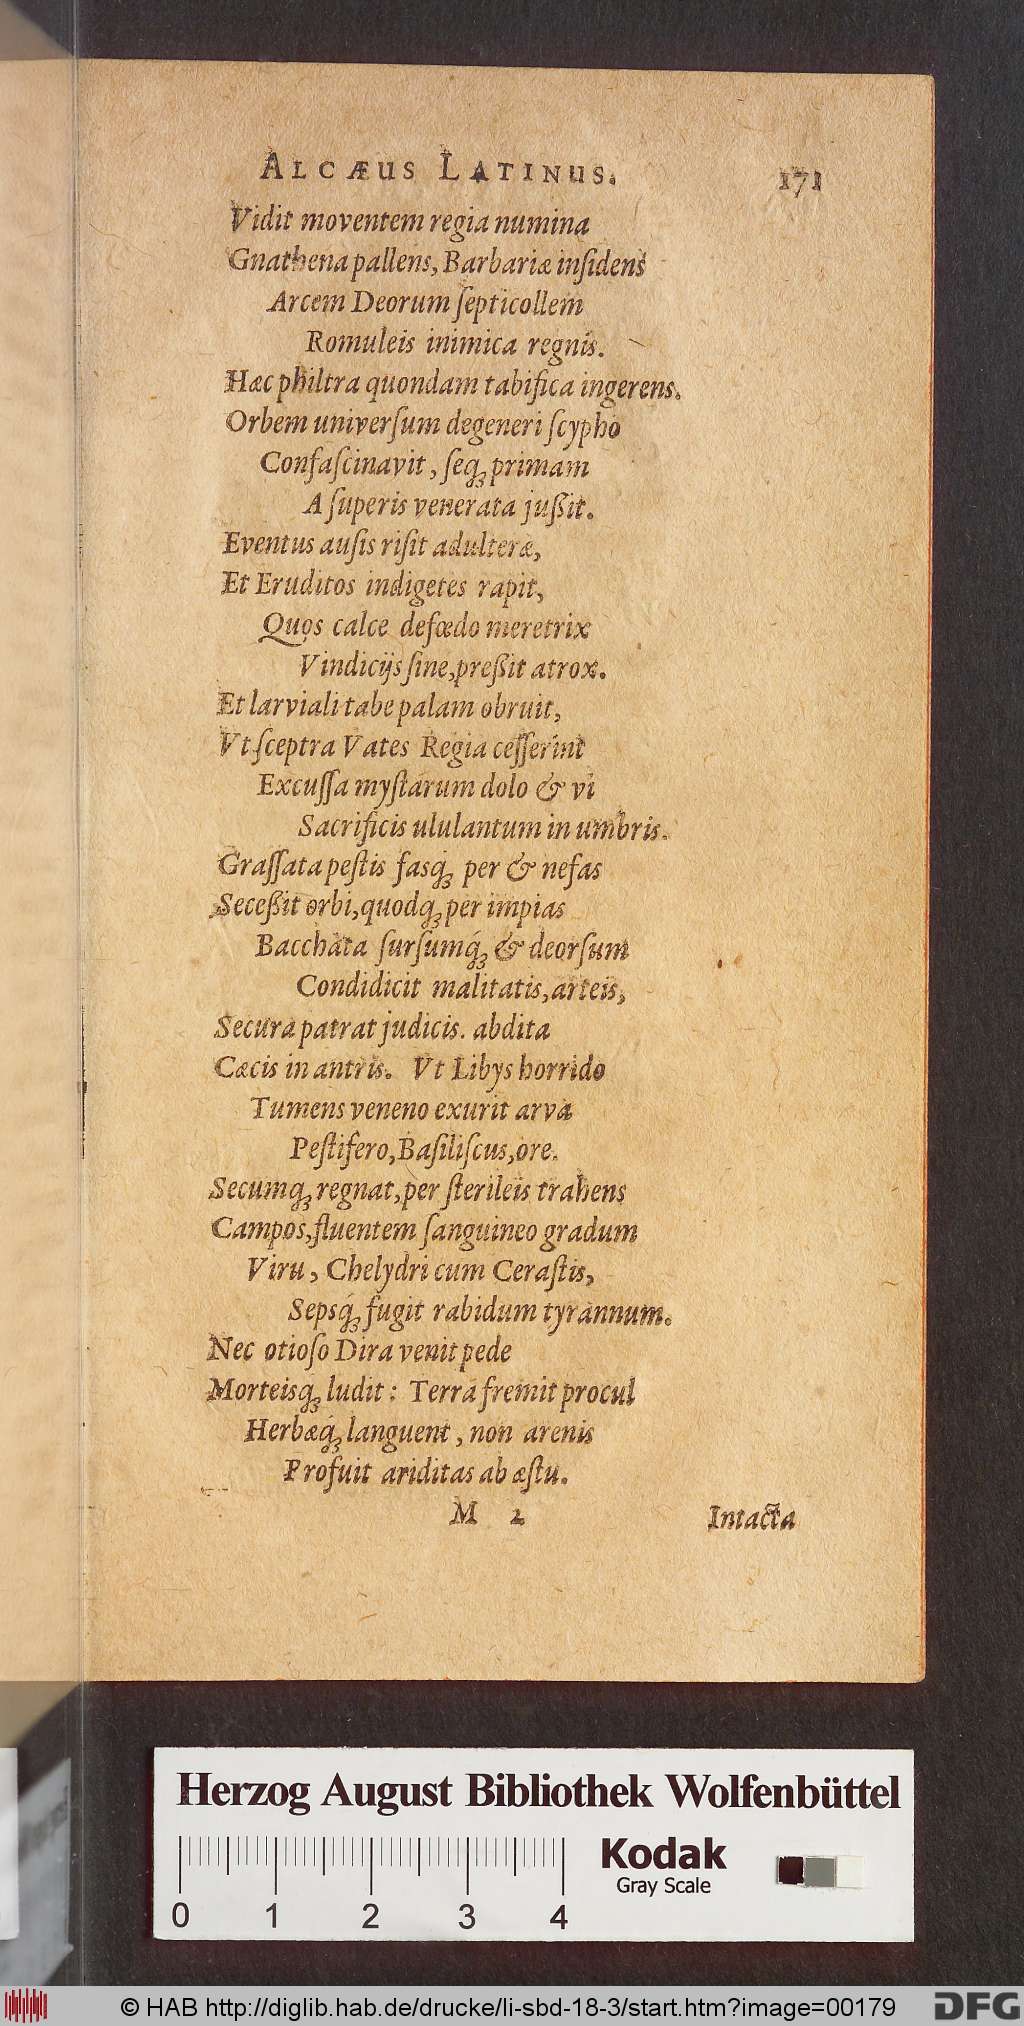 ALCÆUS LATINUS. 171
Vidit moventem regia numina
Gnathena pallens, Barbariæ inſidens
Arcem Deorum ſepticollem
Romuleis inimica regnis.
Hæc philtra quondam tabifica ingerens.
Orbem univerſum degeneri ſcypho
Confaſcinavit, ſeq́; primam
A ſuperis venerata juſßit.
Eventus auſis riſit adulteræ,
Et Eruditos indigetes rapit,
Quos calce defœdo meretrix
Vindicijs ſine, preßit atrox.
Et larviali tabe palam obruit,
Vt ſceptra Vates Regia ceſſerint
Excuſſa myſtarum dolo & vi
Sacrificis ululantum in umbris.
Graſſata peſtis fasq́; per & nefas
Seceßit orbi, quodq; per impias
Bacchata ſurſumq́; & deorſum
Condidicit malitatis, arteis,
Secura patrat judicis. abdita
Cæcis in antris. Vt Libys horrido
Tumens veneno exurit arva
Peſtifero, Baſiliſcus, ore.
Secumq; regnat, per ſterileis trahens
Campos, fluentem ſanguineo gradum
Viru, Chelydri cum Ceraſtis,
Sepsq́; fugit rabidum tyrannum.
Nec otioſo Dira venit pede
Morteisq́; ludit: Terra fremit procul
Herbæq́; languent, non arenis
Profuit ariditas ab æſtu.
M 2 Intacta
Herzog August Bibliothek Wolfenbüttel
Kodak
Gray Scale
0 1 2 3 4
© HAB http://diglib.hab.de/drucke/li-sbd-18-3/start.htm?image=00179 DFG